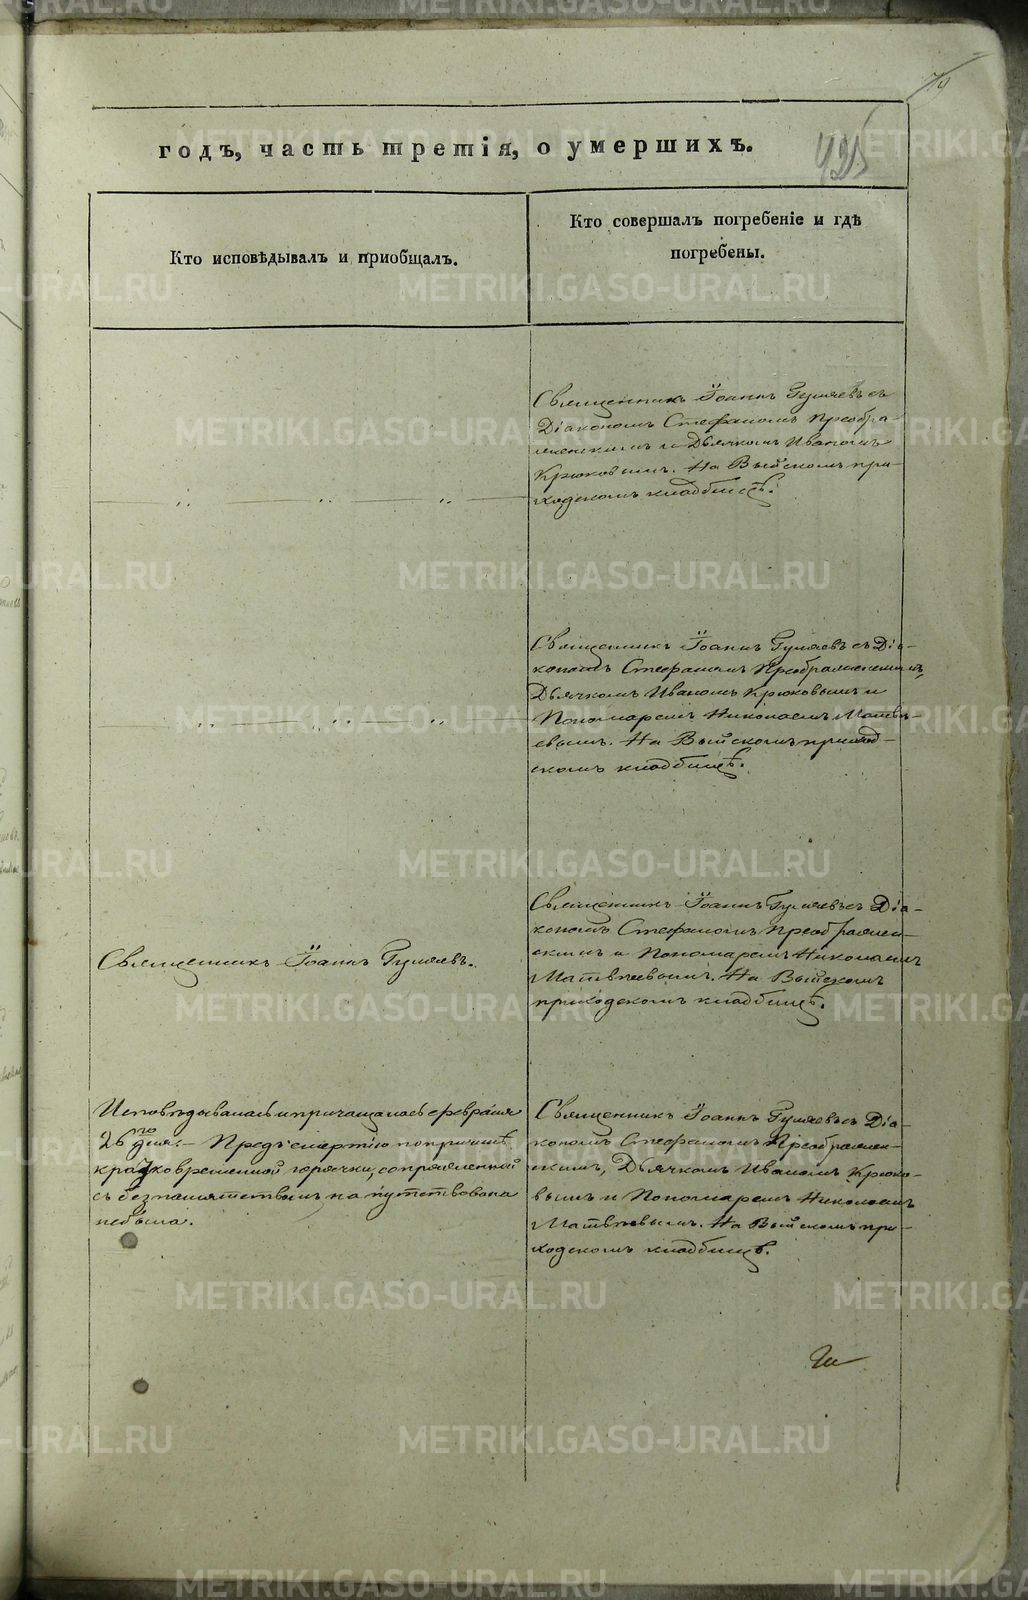 79
годъ, часть третія, о умершихъ.
425
Кто исповѣдывалъ и приобщалъ.
Кто совершалъ погребеніе и гдѣ
погребены.
Священникъ Іоаннъ Гуляевъ съ
Діакономъ Стефаномъ Преобра-
женскимъ и Дьячкомъ Иваномъ
Крюковымъ. На Выйскомъ при-
ходскомъ кладбищѣ.
Священникъ Іоаннъ Гуляевъ съ Діа-
кономъ Стефаномъ Преображенскимъ,
Дьячкомъ Иваномъ Крюковымъ и
Пономаремъ Николаемъ Матвѣ-
евымъ. На Выйскомъ приход-
скомъ кладбищѣ.
Священникъ Іоаннъ Гуляевъ.
Священникъ Іоаннъ Гуляевъ съ Діа-
кономъ Стефаномъ Преображен-
скимъ и Пономаремъ Николаемъ
Матвѣевымъ. На Выйскомъ
приходскомъ кладбищѣ.
Исповѣдывалась и причащалась февраля
26го дня. Предъ смертію по причинѣ
кратковременной горячки, сопряженной
съ безпамятствомъ напутствована
небыла.
Священникъ Іоаннъ Гуляевъ съ Діа-
кономъ Стефаномъ Преображен-
скимъ, Дьячкомъ Иваномъ Крюко-
вымъ и Пономаремъ Николаемъ
Матвѣевымъ. На Выйскомъ при-
ходскомъ кладбищѣ.
METRIKI.GASO-URAL.RU